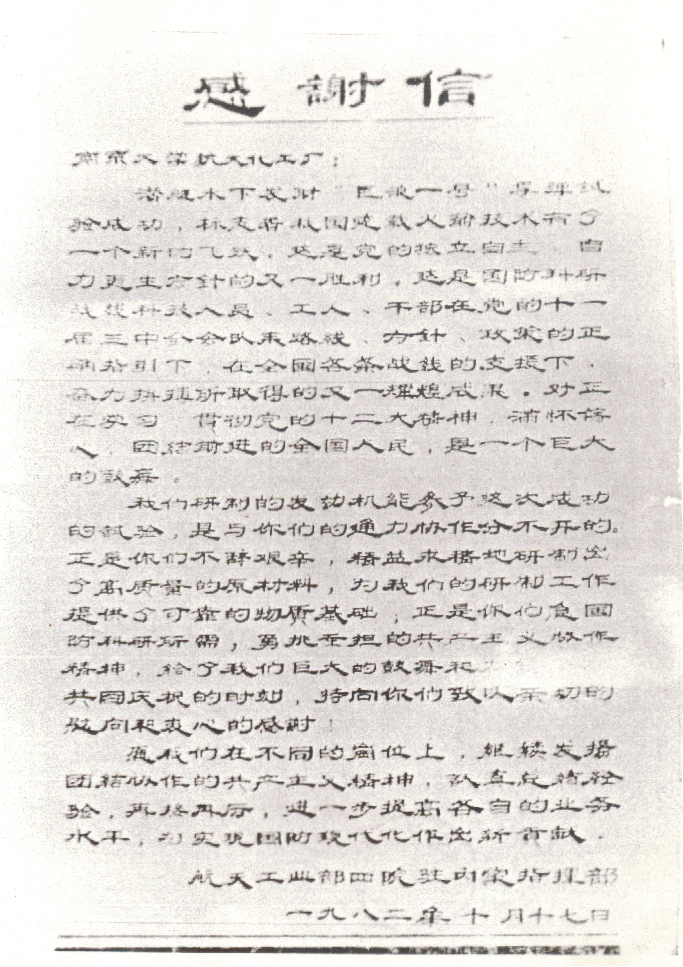 感謝信
南京大学航大化工厂：
潜艇水下发射“巨浪一号”导弹试
验成功，标志着我国运载火箭技术有了
一个新的飞跃，这是党的独立自主、自
力更生方針的又一胜利，这是国防科研
战线科技人员、工人、干部在党的十一
届三中全会以来路线、方針、政策的正
确指引下，在全國各条战线的支援下，
奋力拼搏所取得的又一辉煌成果。对正
在学习、贯彻党的十二大精神，满怀信
心，团结前进的全国人民，是一个巨大
的鼓舞。
我们研制的发动机能参予这次成功
的试验，是与你们的通力协作分不开的。
正是你们不辞艰辛，精益求精地研制出
了高质量的原材料，为我们的研制工作
提供了可靠的物质基础；正是你们急國
防科研所需，勇挑重担的共产主义协作
精神，给了我们巨大的鼓舞和
共同庆祝的时刻，特向你们致以亲切的
慰问和衷心的感謝！
愿我们在不同的崗位上，继续发揚
团结协作的共产主义精神，认真总结经
验，再接再厉，进一步提高各自的业务
水平，为实现国防现代化作出新貢献。
航天工业部四院驻内蒙指揮部
一九八二年十月十七日